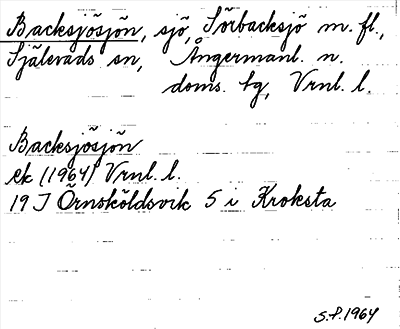 Backsjösjön, sjö, Sörbacksjö m. fl.,
Själevads sn, Ångermanl. n.
doms. tg, Vrnl. l.
Backsjösjön
ek (1964) Vrnl. l.
19 J Örnsköldsvik 5 i Kroksta
S.P. 1964